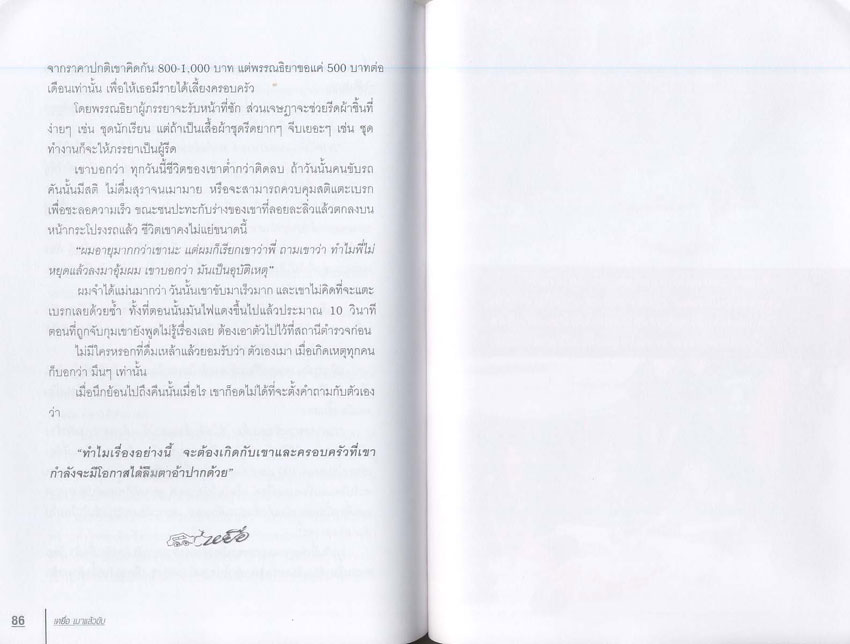 จากราคาปกติเขาคิดกัน 800-1,000 บาท แต่พรรณธิยาขอแค่ 500 บาทต่อ
เดือนเท่านั้น เพื่อให้เธอมีรายได้เลี้ยงครอบครัว
โดยพรรณธิยาผู้ภรรยาจะรับหน้าที่ซัก ส่วนเจษฎาจะช่วยรีดผ้าชิ้นที่
ง่ายๆ เช่น ชุดนักเรียน แต่ถ้าเป็นเสื้อผ้าชุดรีดยากๆ จีบเยอะๆ เช่น ชุด
ทำงานก็จะให้ภรรยาเป็นผู้รีด
เขาบอกว่า ทุกวันนี้ชีวิตของเขาต่ำกว่าติดลบ ถ้าวันนั้นคนขับรถ
คันนั้นมีสติ ไม่ดื่มสุราจนเมามาย หรือจะสามารถควบคุมสติแตะเบรก
เพื่อชะลอความเร็ว ขณะชนปะทะกับร่างของเขาที่ลอยละลิ่วแล้วตกลงบน
หน้ากระโปรงรถแล้ว ชีวิตเขาคงไม่แย่ขนาดนี้
“ผมอายุมากกว่าเขานะ แต่ผมก็เรียกเขาว่าพี่ ถามเขาว่า ทำไมพี่ไม่
หยุดแล้วลงมาอุ้มผม เขาบอกว่า มันเป็นอุบัติเหตุ”
ผมจำได้แม่นมากว่า วันนั้นเขาขับมาเร็วมาก และเขาไม่คิดที่จะแตะ
เบรกเลยด้วยซ้ำ ทั้งที่ตอนนั้นมันไฟแดงขึ้นไปแล้วประมาณ 10 วินาที
ตอนที่ถูกจับกุมเขายังพูดไม่รู้เรื่องเลย ต้องเอาตัวไปไว้ที่สถานีตำรวจก่อน
ไม่มีใครหรอกที่ดื่มเหล้าแล้วยอมรับว่า ตัวเองเมา เมื่อเกิดเหตุทุกคน
ก็บอกว่า มึนๆ เท่านั้น
เมื่อนึกย้อนไปถึงคืนนั้นเมื่อไร เขาก็อดไม่ได้ที่จะตั้งคำถามกับตัวเอง
ว่า
“ทำไมเรื่องอย่างนี้ จะต้องเกิดกับเขาและครอบครัวที่เขา
กำลังจะมีโอกาสได้ลืมตาอ้าปากด้วย”
เหยื่อ
86 เหยื่อ เมาแล้วขับ